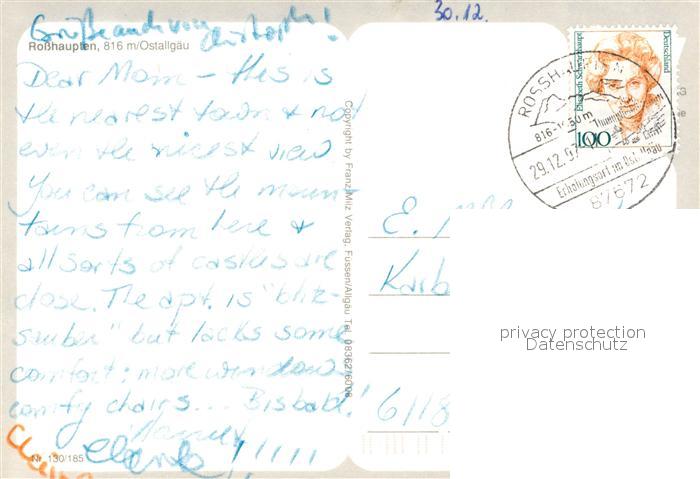 Grüße auch von
30.12.
Roßhaupten, 816 m/Ostallgäu
Dear Mom - this is
the nearest town & not
even the nicest view
you can see the moun-
tains from here &
all sorts of castles are
close. The apt. is "blitz-
sauber" but lacks some
comfort; more windows
comfy chairs... Bis bald!
Nr. 130/185
Copyright by Franz Milz Verlag, Füssen/Allgäu Tel. 08362/6008
Elisabeth Schwarzhaupt
Deutschland
100
29.12.97
Erholungsort im Ostallgäu
87672
E.
Karb
6118
privacy protection
Datenschutz